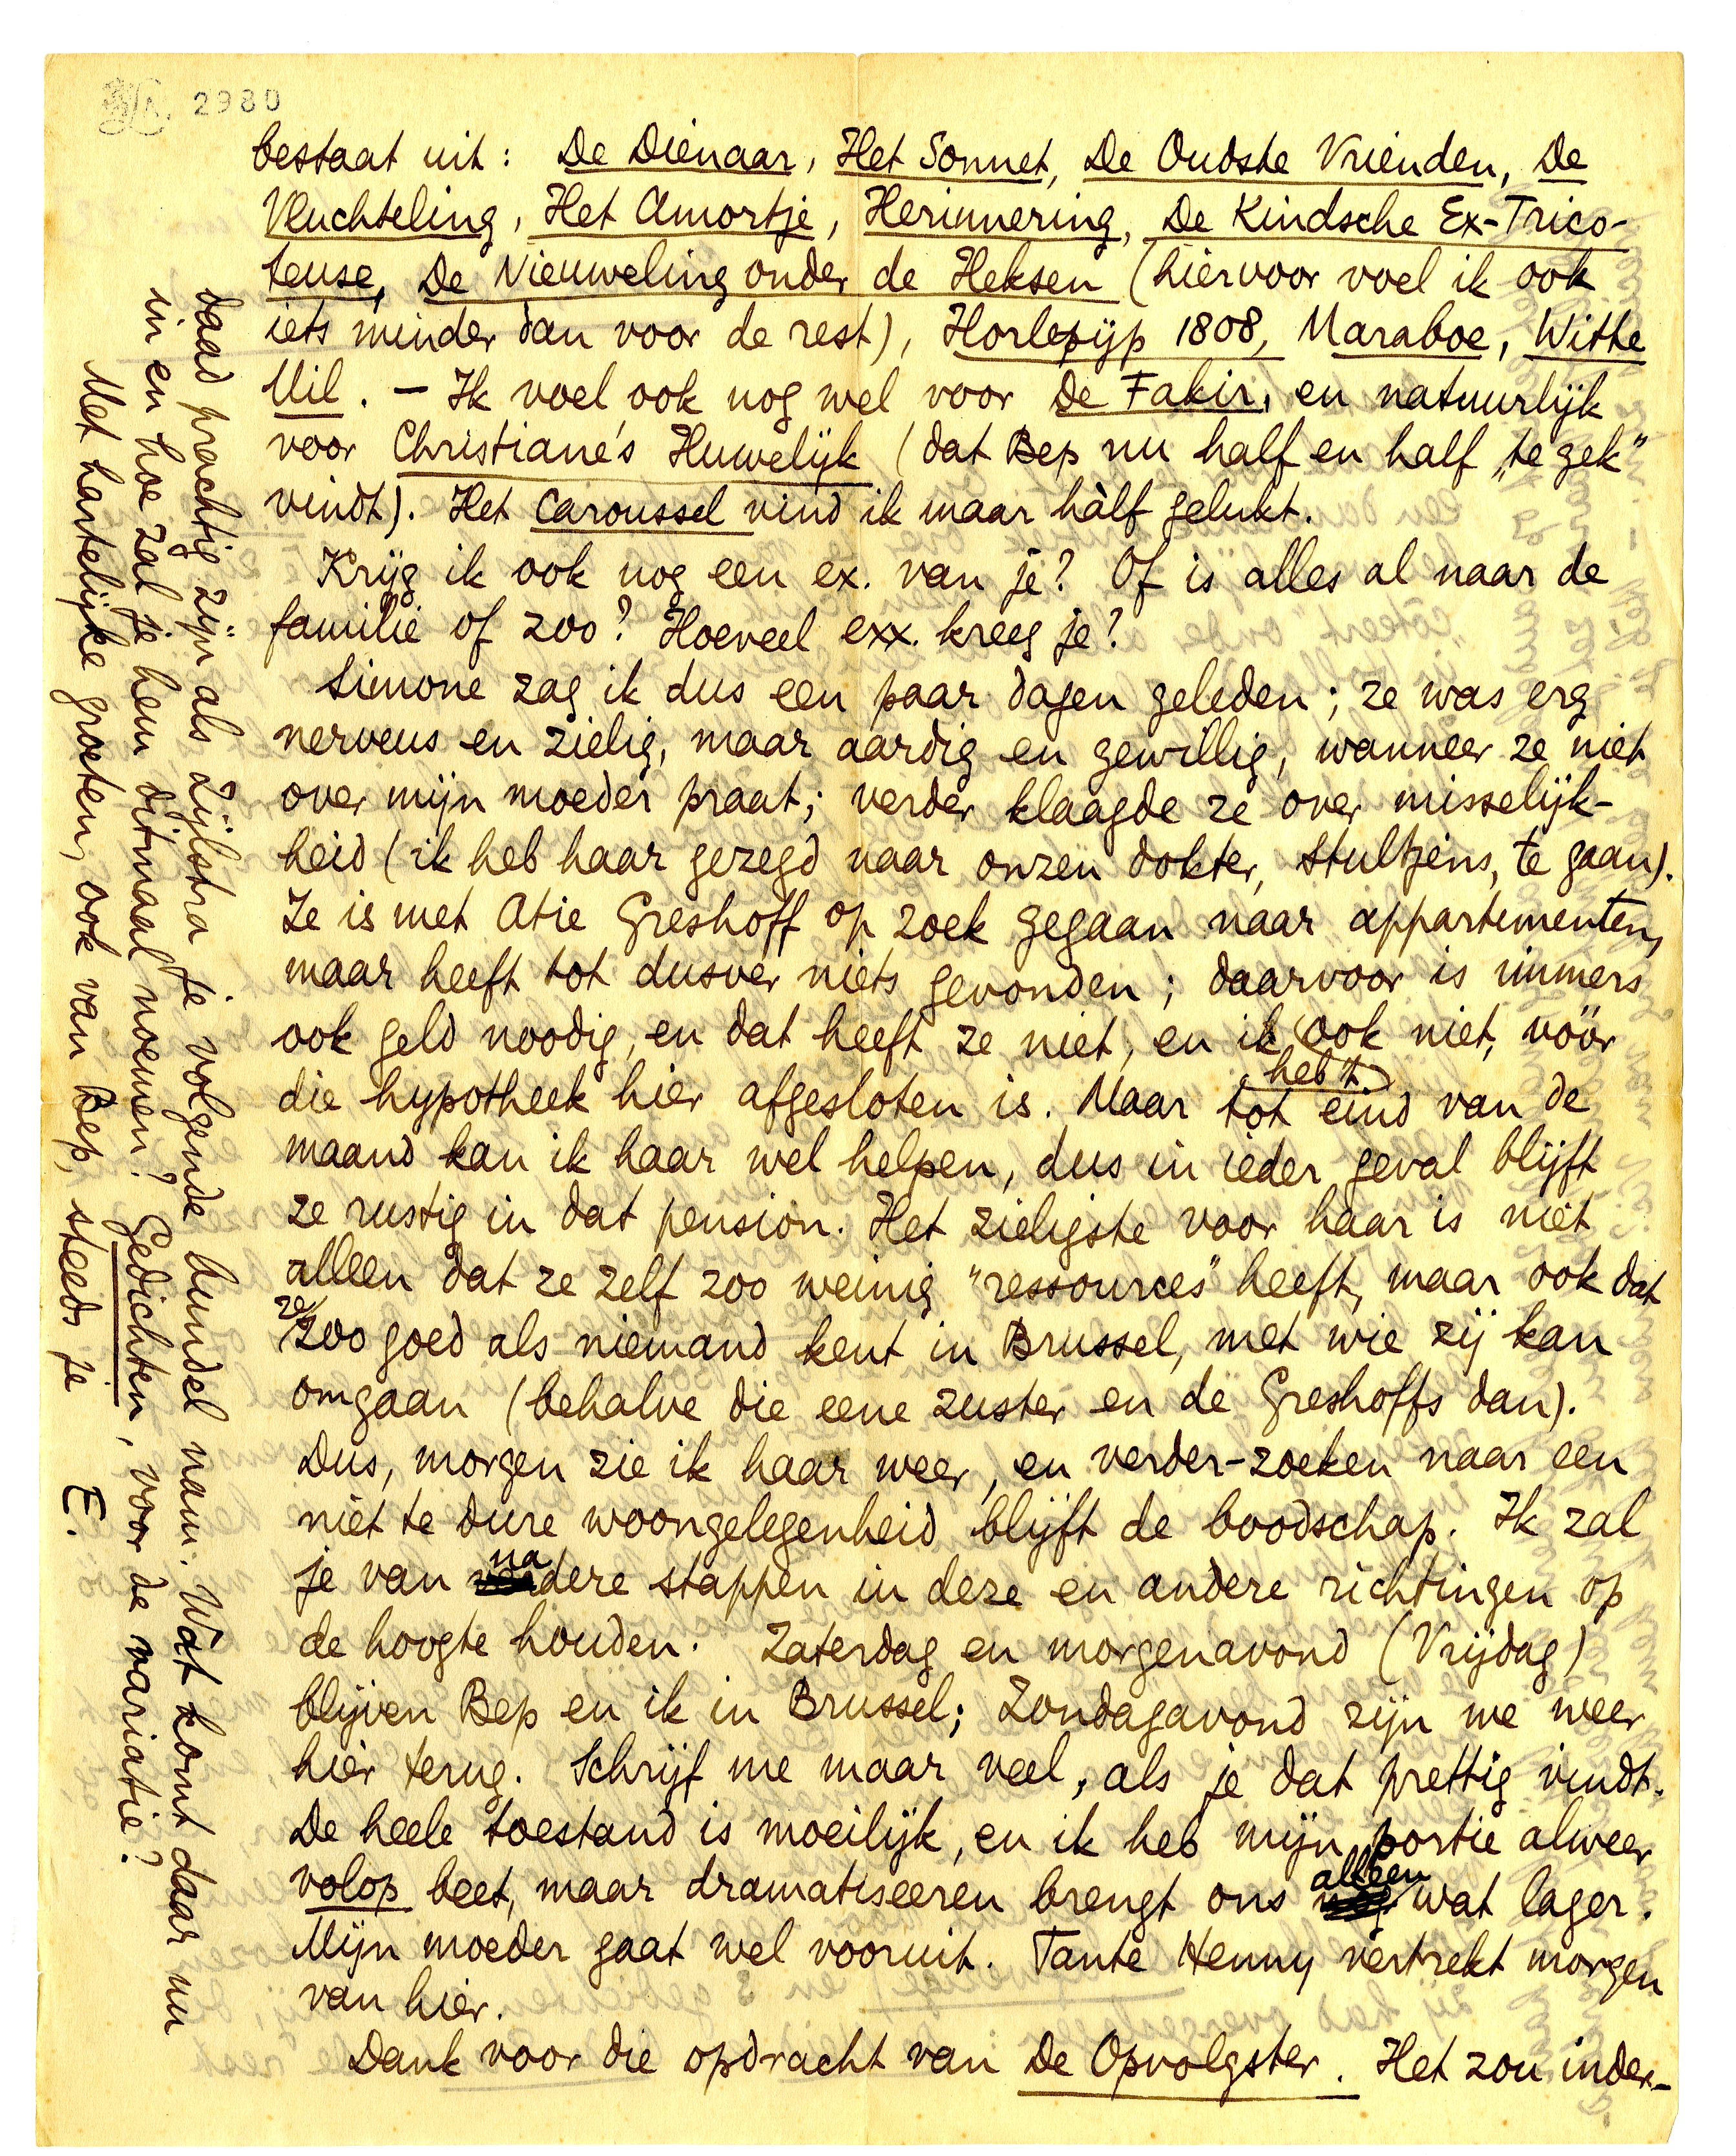 2980
bestaat uit: De Dienaar, Het Sonnet, De Oudste Vrienden, De
Vluchteling, Het Amortje, Herinnering, De Kindsche Ex-Trico-
teuse, De Nieuweling onder de Heksen (hiervoor voel ik ook
iets minder dan voor de rest), Horlepijp 1808, Maraboe, Witte
Uil. – Ik voel ook nog wel voor De Fakir, en natuurlijk
voor Christiane's Huwelijk (dat Bep nu half en half „te gek”
vindt). Het Caroussel vind ik maar hàlf gelukt.
Krijg ik ook nog een ex. van je? Of is alles al naar de
familie of zoo? Hoeveel exx. kreeg je?
Simone zag ik dus een paar dagen geleden; ze was erg
nerveus en zielig, maar aardig en gewillig, wanneer ze niet
over mijn moeder praat; verder klaagde ze over misselijk-
heid (ik heb haar gezegd naar onzen dokter, Stultjens, te gaan).
Ze is met Atie Greshoff op zoek gegaan naar appartementen,
maar heeft tot dusver niets gevonden; daarvoor is immers
ook geld noodig, en dat heeft ze niet, en ik heb 't ook niet, vóór
die hypotheek hier afgesloten is. Maar tot eind van de
maand kan ik haar wel helpen, dus in ieder geval blijft
ze rustig in dat pension. Het zieligste voor haar is niet
alleen dat ze zelf zoo weinig "ressources" heeft, maar ook dat
ze zoo goed als niemand kent in Brussel, met wie zij kan
omgaan (behalve die eene zuster en de Greshoffs dan).
Dus, morgen zie ik haar weer, en verder-zoeken naar een
niet te dure woongelegenheid blijft de boodschap. Ik zal
je van nadere stappen in deze en andere richtingen op
de hoogte houden. Zaterdag en morgenavond (Vrijdag)
blijven Bep en ik in Brussel; Zondagavond zijn we weer
hier terug. Schrijf me maar veel, als je dat prettig vindt.
De heele toestand is moeilijk, en ik heb mijn portie alweer
volop beet, maar dramatiseeren brengt ons alleen wat lager.
Mijn moeder gaat wel vooruit. Tante Henny vertrekt morgen
van hier.
Dank voor die opdracht van De Opvolgster. Het zou inder-
daad prachtig zijn als Zijlstra je volgende bundel nam. Wat komt daar nu
in en hoe zal je hem ditmaal noemen? Gedichten, voor de variatie?
Met hartelijke groeten, ook van Bep, steeds je
E.